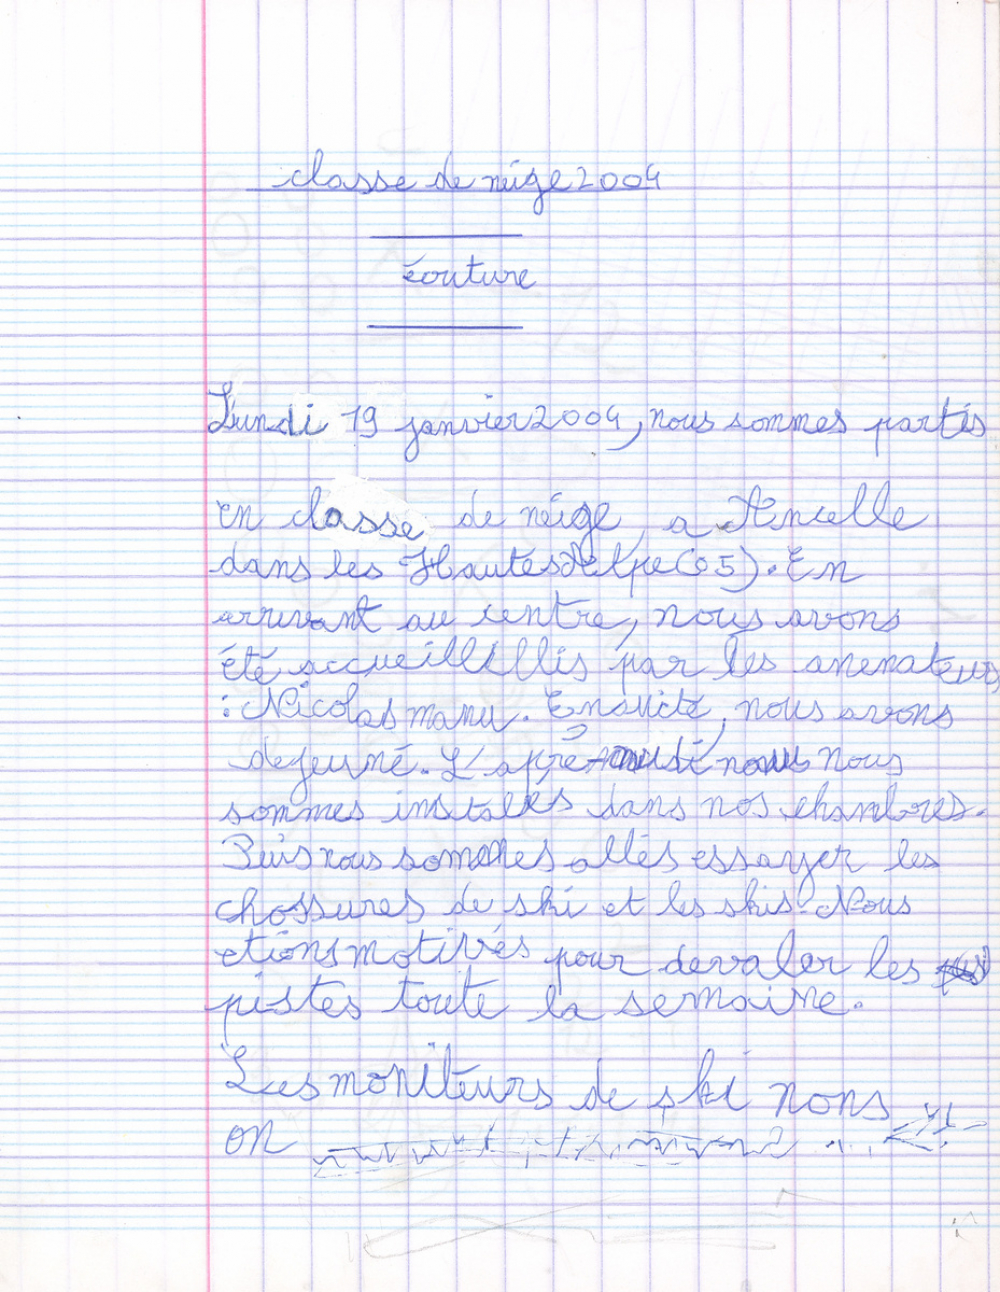 classe de neige 2004
écriture
Lundi 19 janvier 2004, nous sommes partis
en classe de neige, a Ancelle
dans les Hautes Alpe (05). En
arrivant au centre, nous avons
été accueillis par les anemateurs
: Nicolas manu. Ensuite, nous avons
dejeuné. L'aprè nous
sommes instalés dans nos chambres.
Puis nous sommes allés essayer les
chossures de ski et les skis. Nous
etions motivés pour devaler les
pistes toute la semaine.
Les moniteurs de ski nons
on